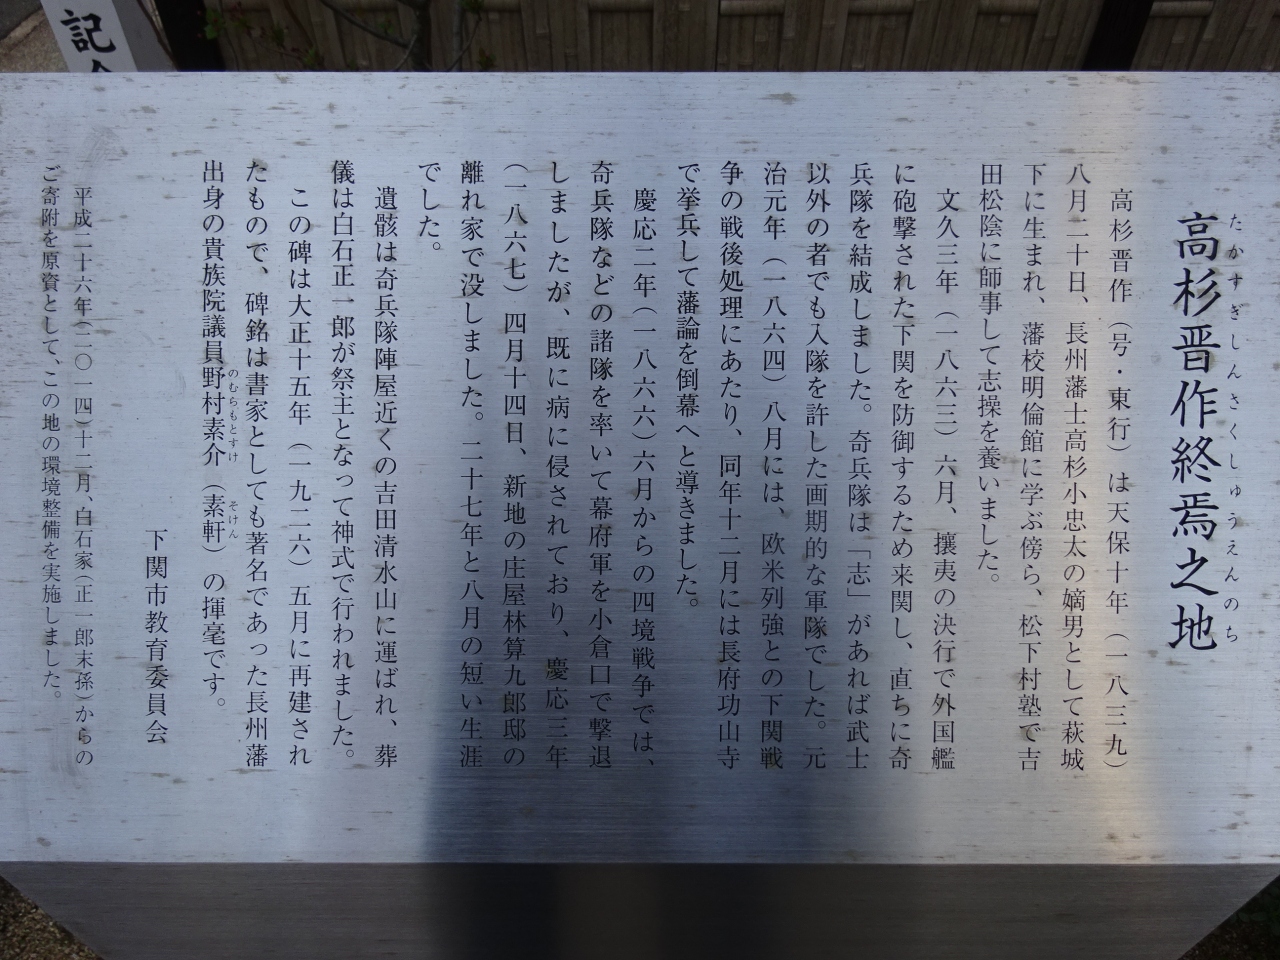 高杉晋作終焉之地
たかすぎしんさくしゅうえんのち
高杉晋作（号・東行）は天保十年（一八三九）
八月二十日、長州藩士高杉小忠太の嫡男として萩城
下に生まれ、藩校明倫館に学ぶ傍ら、松下村塾で吉
田松陰に師事して志操を養いました。
文久三年（一八六三）六月、攘夷の決行で外国艦
に砲撃された下関を防御するため来関し、直ちに奇
兵隊を結成しました。奇兵隊は「志」があれば武士
以外の者でも入隊を許した画期的な軍隊でした。元
治元年（一八六四）八月には、欧米列強との下関戦
争の戦後処理にあたり、同年十二月には長府功山寺
で挙兵して藩論を倒幕へと導きました。
慶応二年（一八六六）六月からの四境戦争では、
奇兵隊などの諸隊を率いて幕府軍を小倉口で撃退
しましたが、既に病に侵されており、慶応三年
（一八六七）四月十四日、新地の庄屋林算九郎邸の
離れ家で没しました。二十七年と八月の短い生涯
でした。
遺骸は奇兵隊陣屋近くの吉田清水山に運ばれ、葬
儀は白石正一郎が祭主となって神式で行われました。
この碑は大正十五年（一九二六）五月に再建され
たもので、碑銘は書家としても著名であった長州藩
出身の貴族院議員野村素介（素軒）の揮毫です。
のむらもとすけ
そけん
下関市教育委員会
平成二十六年（二〇一四）十二月、白石家（正一郎末孫）からの
ご寄附を原資として、この地の環境整備を実施しました。
記